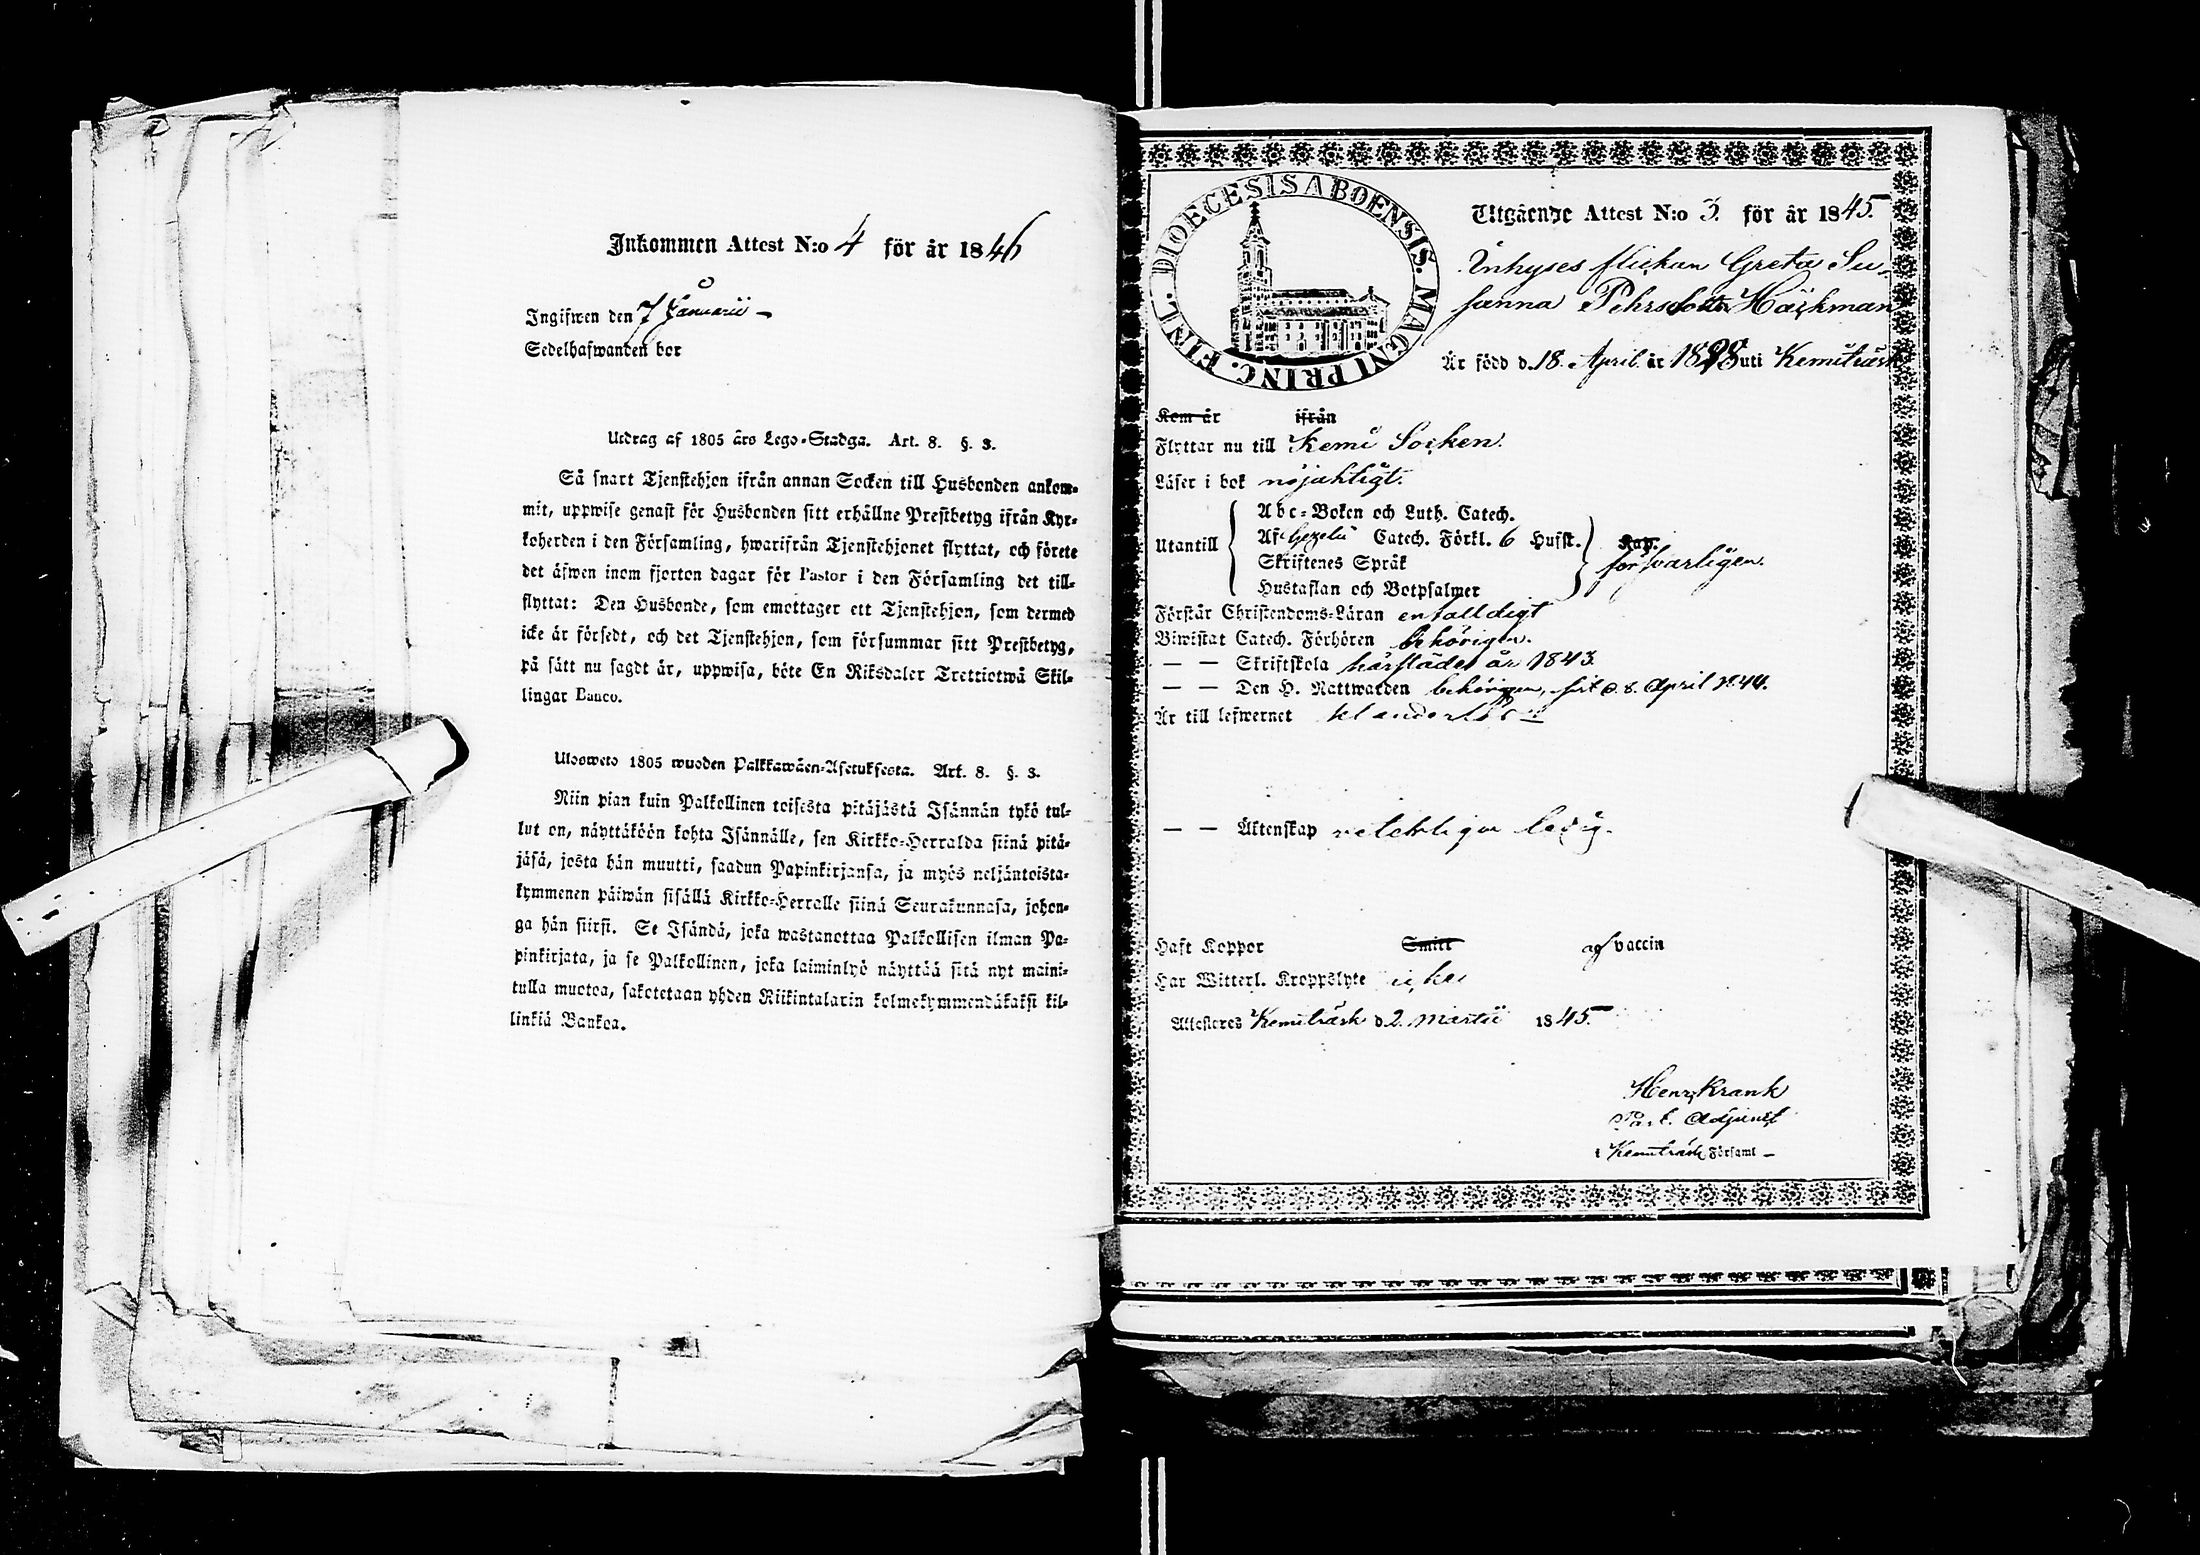 Inkommen Attest N:o 4 för år 1846
Ingifwen den 7 Januarii
Sedelhafwanden bor
Utdrag af 1805 års Lego-Stadga. Art. 8. §. 3.
Så snart Tjenstehjon ifrån annan Socken till Husbonden ankom-
mit, uppwise genast för Husbonden sitt erhållne Prestbetyg ifrån Kyr-
koherden i den Församling, hwarifrån Tjenstehjonet flyttat, och förete
det äfwen inom fjorton dagar för Pastor i den Församling det till-
flyttat: Den Husbonde, som emottager ett Tjenstehjon, som dermed
icke är försedt, och det Tjenstehjon, som försummar sitt Prestbetyg,
på sätt nu sagdt är, uppwisa, böte En Riksdaler Trettiotwå Skil-
lingar Banco.
Ulosweto 1805 wuoden Palkkawäen-Asetuksesta. Art. 8. §. 3.
Niin pian kuin Palkollinen toisesta pitäjästä Isännän tykö tul-
lut on, näyttäköön kohta Isännälle, sen Kirkko-Herralda siinä pitä-
jäsä, josta hän muutti, saadun Papinkirjansa, ja myös neljäntoista-
kymmenen päiwän sisällä Kirkko-Herralle siinä Seurakunnasa, johon-
ga hän siirsi. Se Isändä, joka wastanottaa Palkollisen ilman Pa-
pinkirjata, ja se Palkollinen, joka laiminlyö näyttää sitä nyt maini-
tulla muotoa, sakotetaan yhden Riikintalarin kolmekymmendäkaksi kil-
linkiä Bankoa.
DIOECESIS ABOENSIS. MAGNI PRINC. FINL.
Utgående Attest N:o 3. för år 1845.
Inhyses flickan Greta Su-
sanna Pehrsdotter Häckman
Är född d. 18. April år 1828 uti Kemiträsk
Kom år ifrån
Flyttar nu till Kemi Socken.
Läser i bok nöjaktigt.
Abc-Boken och Luth. Catech.
Utantill Af Gezelii Catech. Förkl. 6 Hufst. Kap.
Skriftenes Språk försvarligen.
Hustaflan och Botpsalmer
Förstår Christendoms-Läran enfalldigt
Biwistat Catech. Förhören behörigen.
— — Skriftskola härstädes år 1843.
— — Den H. Nattwarden behörigen, sist d. 8. April 1844.
Är till lefwernet klanderlös
— — Äktenskap veterligen ledig.
Haft Koppor Smitt af vaccin
Har Witterl. Kroppslyte icke
Attesteres Kemiträsk d 2. Martii 1845.
Henr. Krank
Past. Adjunct
i Kemiträsk Församl